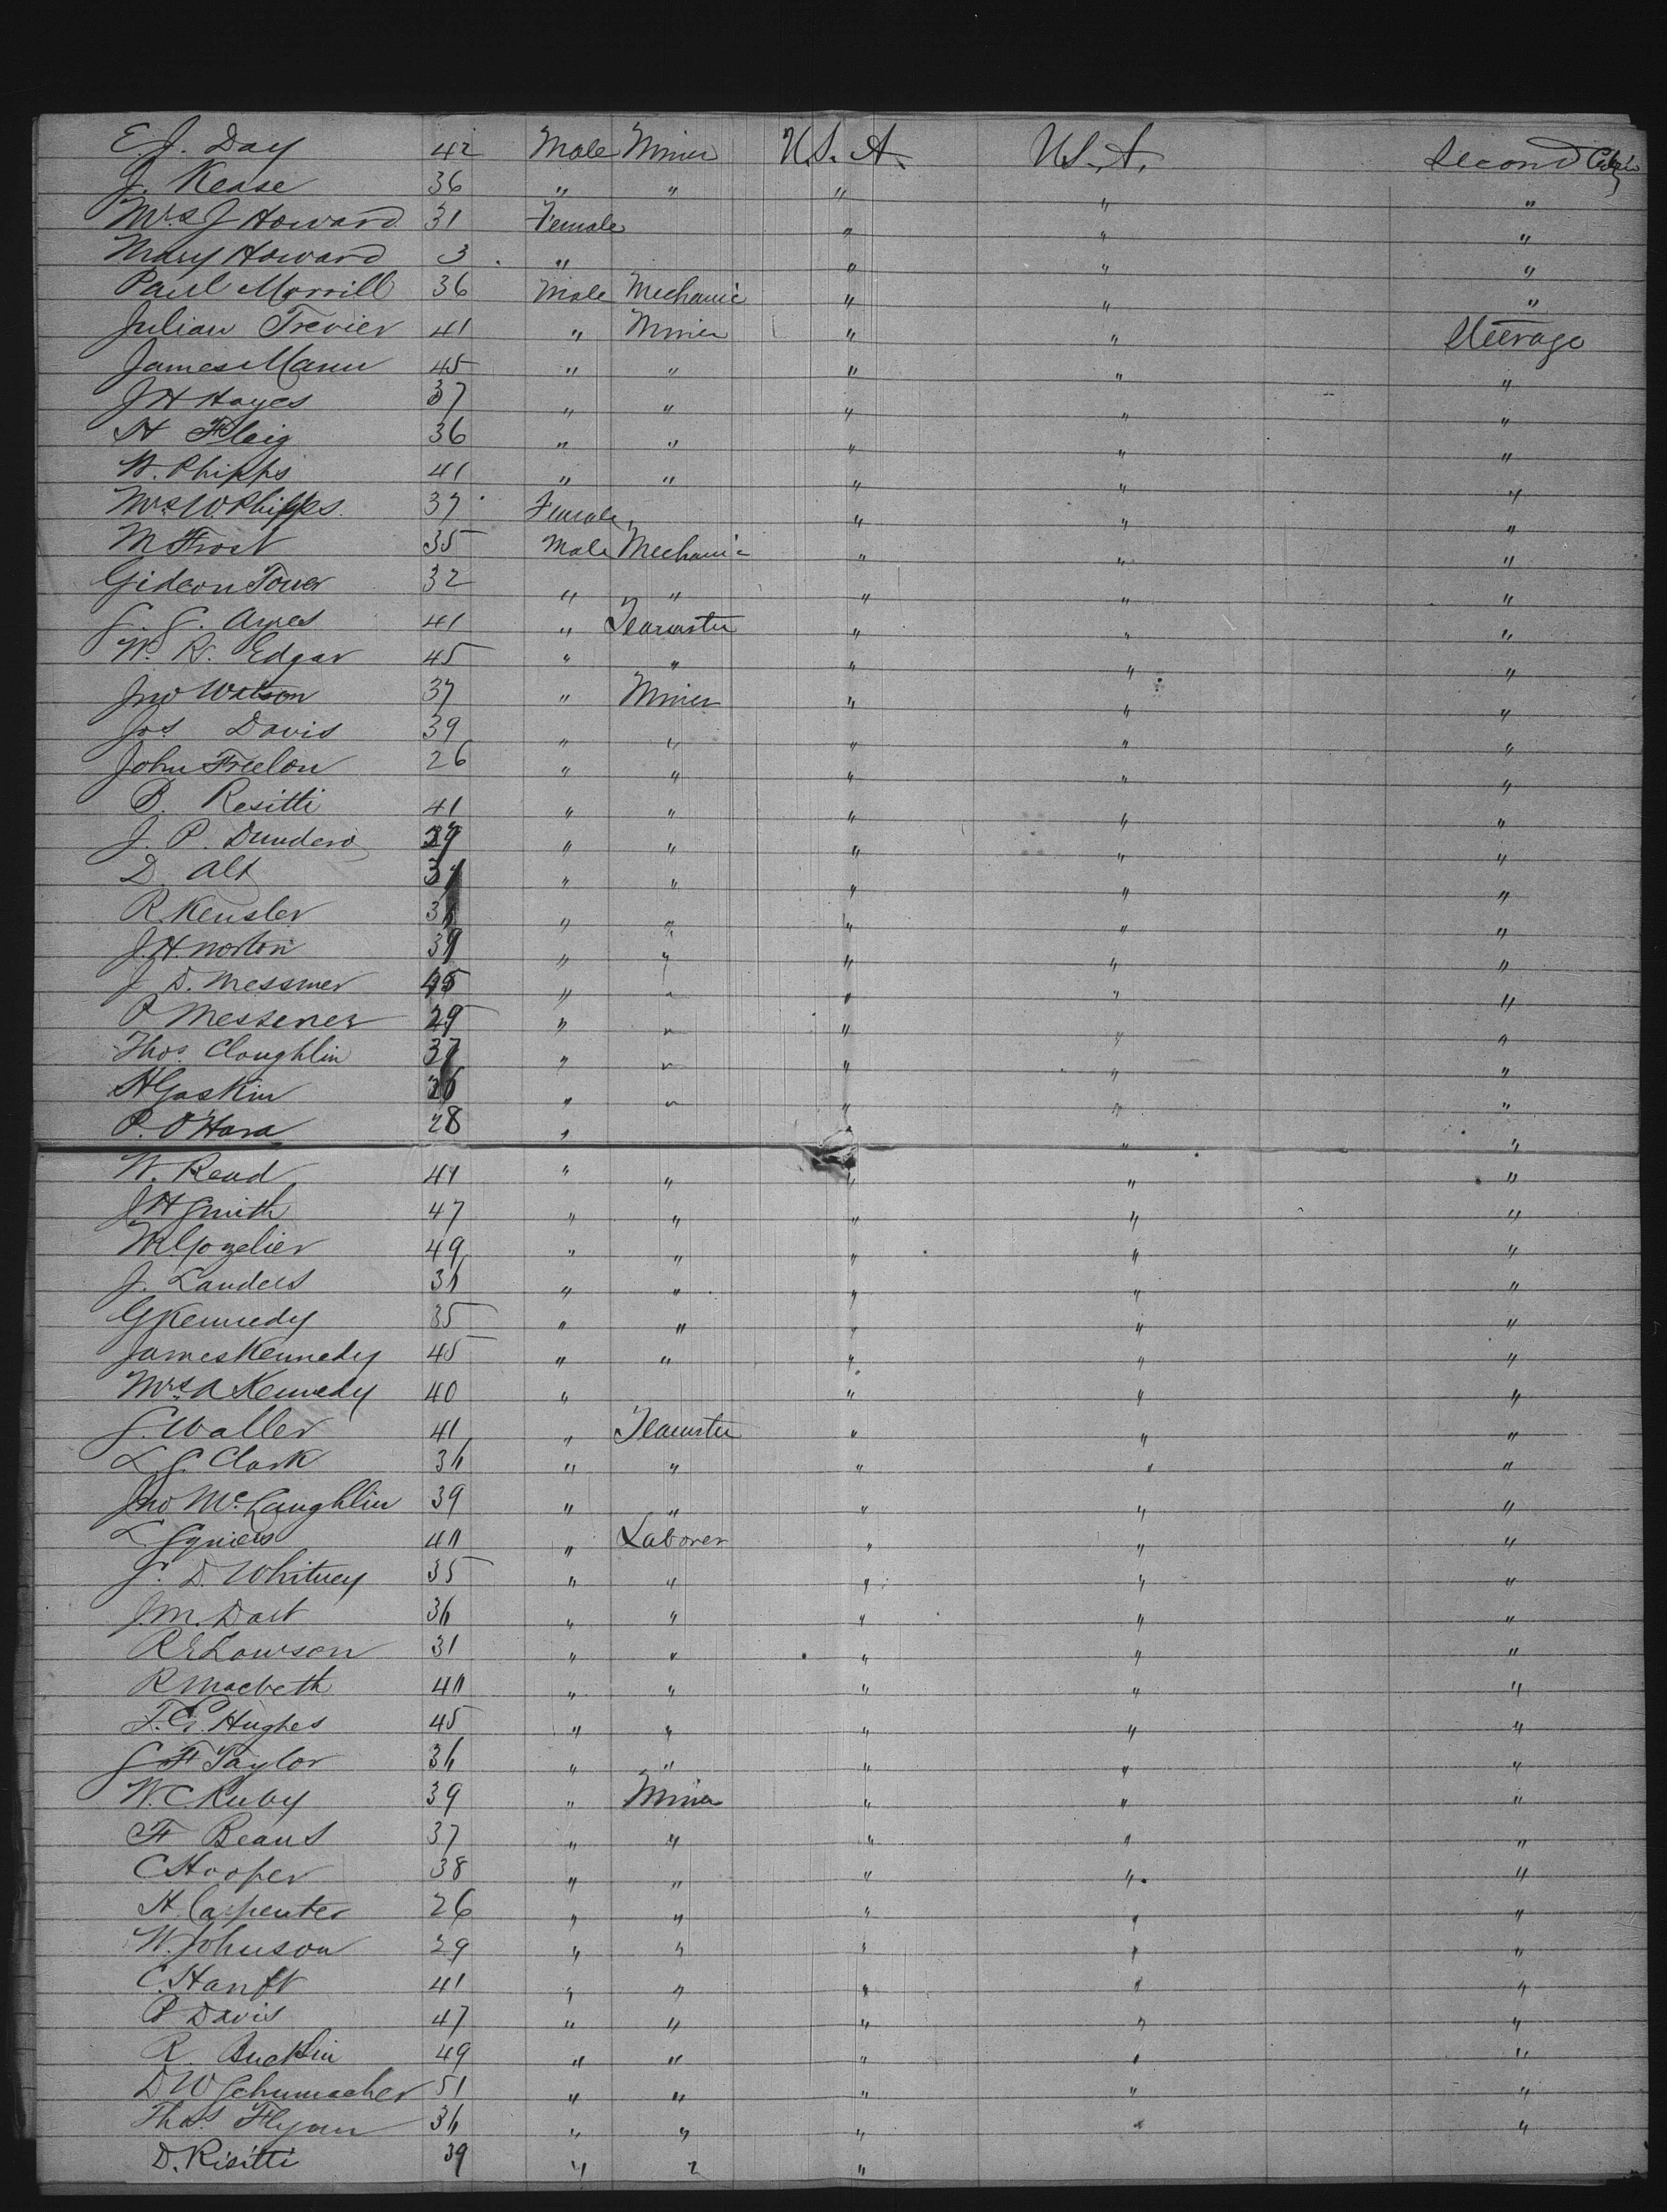 E. J. Day 42 Male Miner U.S.A. U.S.A. Second Cabin
J. Kease 36 " " " " "
Mrs J Howard 31 Female " " "
Mary Howard 3 " " " "
Paul Morrill 36 Male Mechanic " " "
Julian Trevier 41 " Miner " " Steerage
James Mann 45 " " " " "
J H Hayes 37 " " " " "
H Flaig 36 " " " " "
W. Phipps 41 " " " " "
Mrs W. Phipps. 37 Female " " "
M Frost 35 Male Mechanic " " "
Gideon Tower 32 " " " " "
S. S. Ayres 41 " Teamster " " "
W. R. Edgar 45 " " " " "
Jno Watson 37 " Miner " " "
Jos Davis 39 " " " " "
John Freelon 26 " " " " "
B. Resitti 41 " " " " "
J. P. Dundero " " " " "
D. Alt " " " " "
R. Kensler " " " " "
J. H. Norton 39 " " " " "
J D. Messmer 45 " " " " "
P Messener 29 " " " " "
Thos. Cloughlin 37 " " " " "
H Gaskin 36 " " " " "
P. O'Hara 28 " " " "
W. Read 41 " " " " "
J H Smith 47 " " " " "
W. Gozelier 49 " " " " "
J. Landers 36 " " " " "
G Kennedy 35 " " " " "
James Kennedy 45 " " " " "
Mrs A Kennedy 40 " " " "
S. Waller 41 " Teamster " " "
L. S. Clark 36 " " " " "
Jno McLaughlin 39 " " " " "
L 40 " Laborer " " "
S. D. Whitney 35 " " " " "
J. M. Dart 36 " " " " "
R E Lawson 31 " " " " "
R Macbeth 40 " " " " "
T. G. Hughes 45 " " " " "
S F Taylor 36 " " " " "
W. C. Ruby 39 " Miner " " "
F Beans 37 " " " " "
C Hooper 38 " " " " "
H. Carpenter 26 " " " " "
W. Johnson 29 " " " " "
C. Hanft 41 " " " " "
P Davis 47 " " " " "
R. Bucklin 49 " " " " "
D W Schumacher 51 " " " " "
Thos Flynn 36 " " " " "
D. Risitti 39 " " "